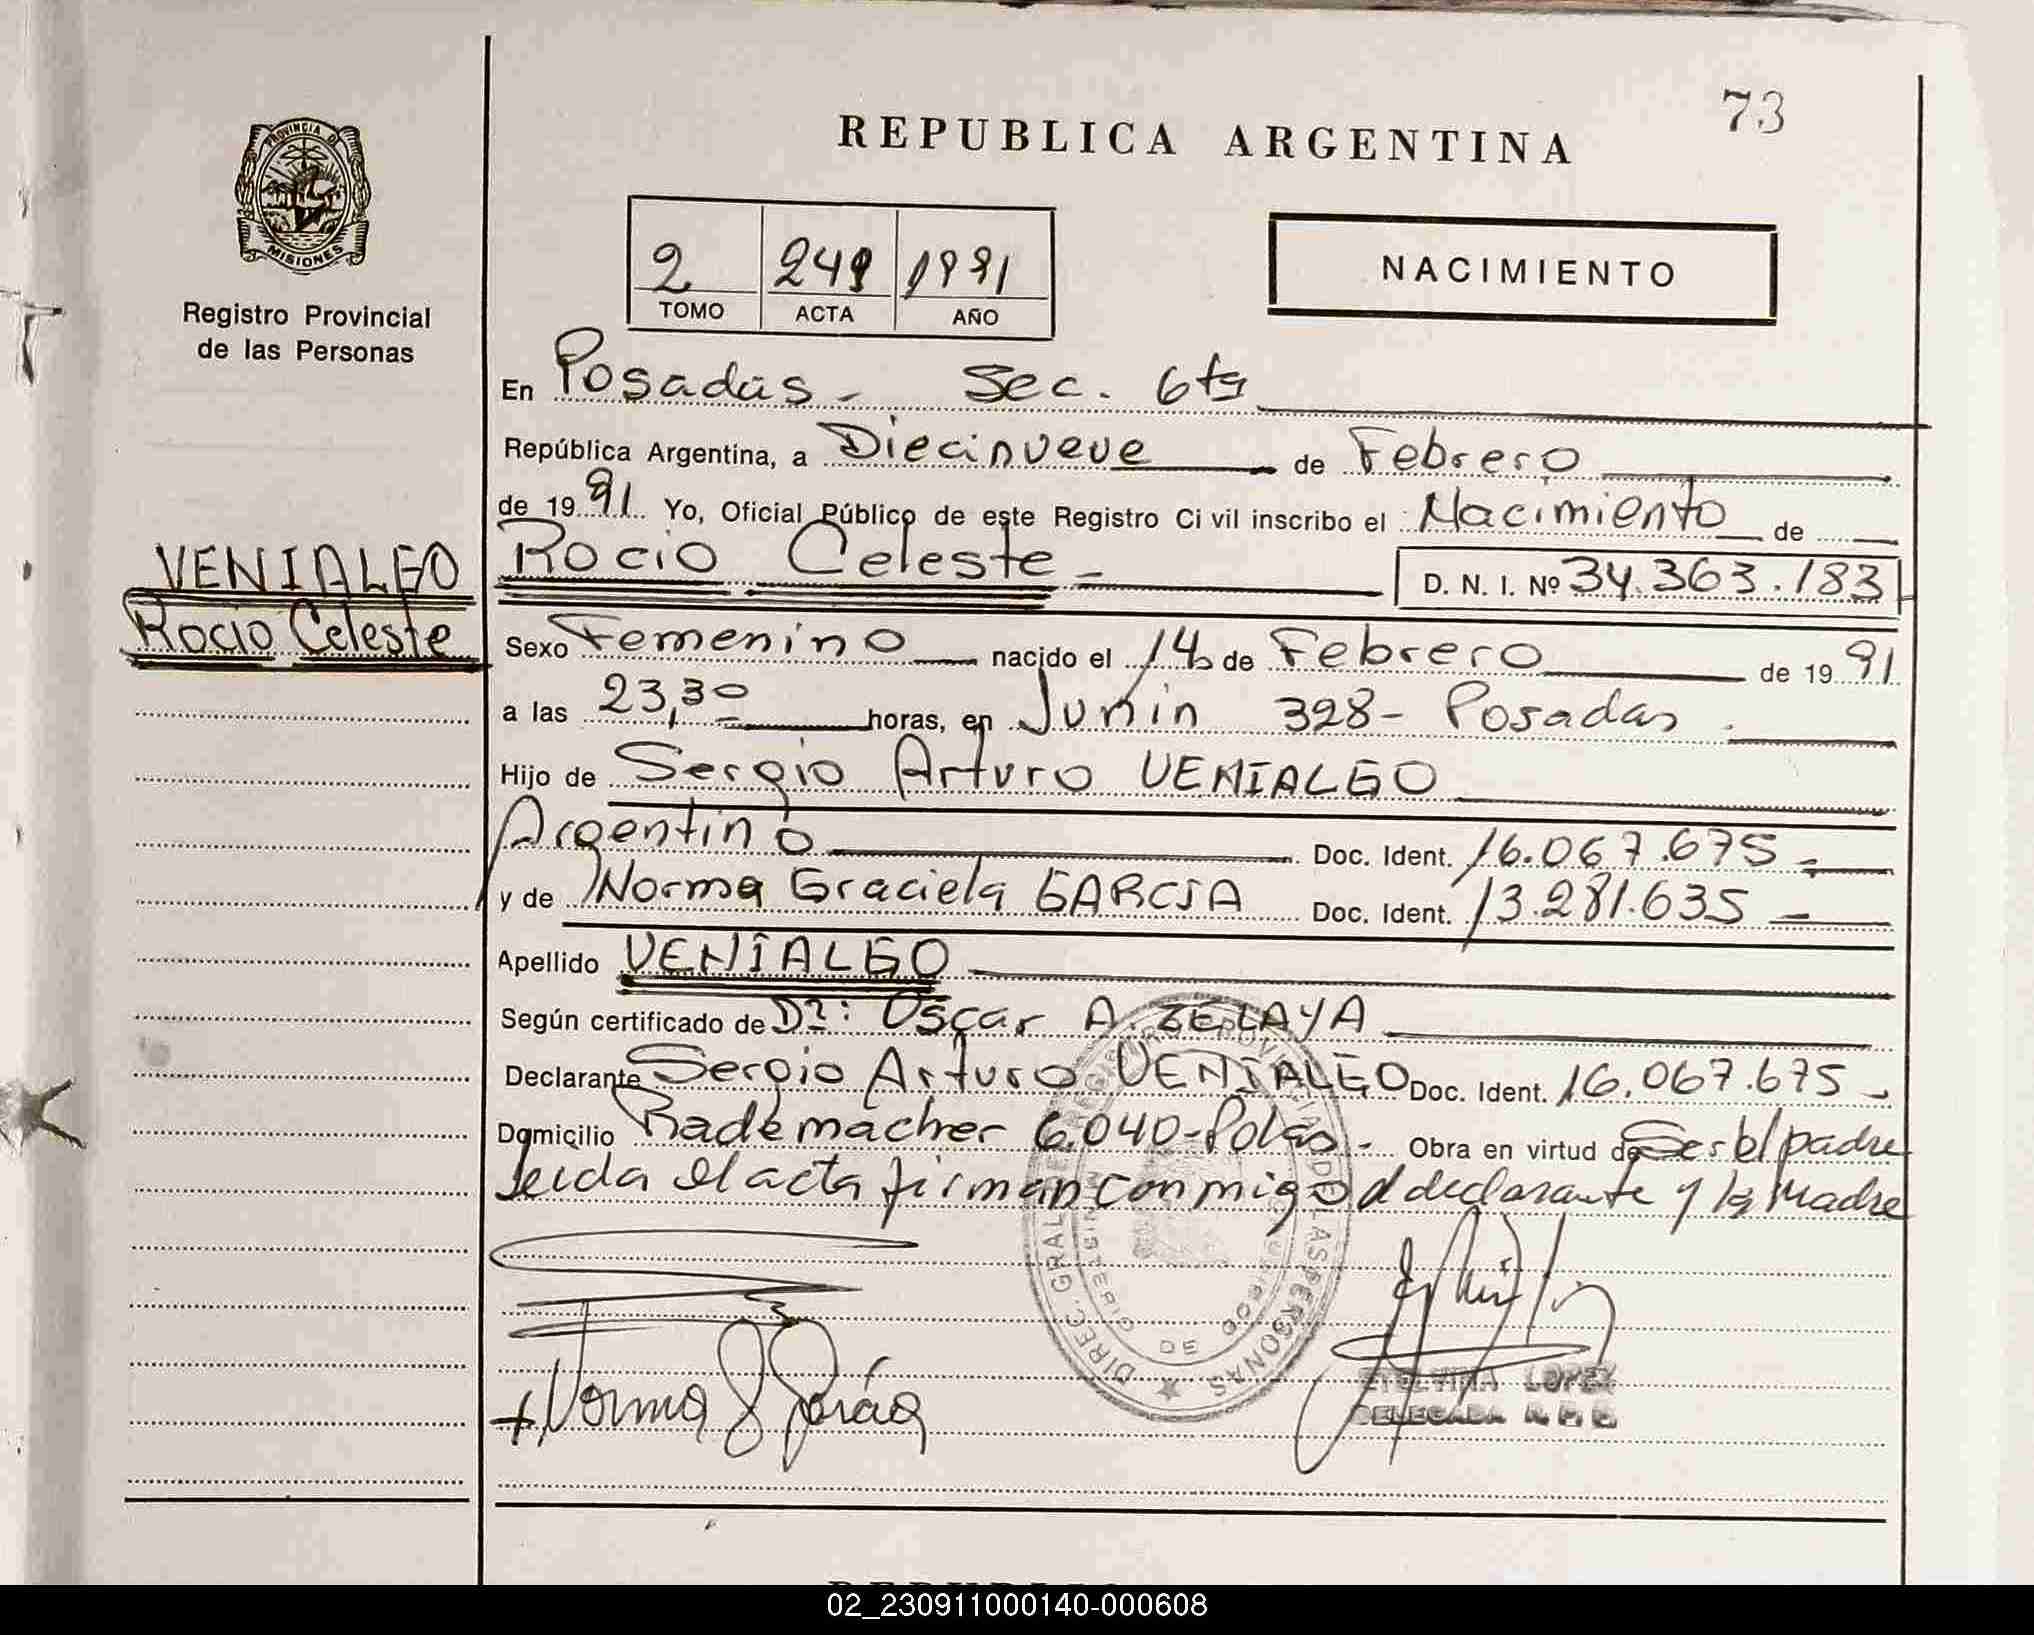 73
REPUBLICA ARGENTINA
PROVINCIA D MISIONES
Registro Provincial
de las Personas
2 249 1991
TOMO ACTA AÑO
NACIMIENTO
En Posadas - Sec. 6ta
República Argentina, a Diecinueve de Febrero
de 1991 Yo, Oficial Público de este Registro Civil inscribo el Nacimiento de
VENIALGO
Rocio Celeste
Rocio Celeste - D. N. I. Nº 34.363.183
Sexo Femenino nacido el 14 de Febrero de 1991
a las 23,30 horas, en Junin 328 - Posadas.
Hijo de Sergio Arturo VENIALGO
Argentino Doc. Ident. 16.067.675 -
y de Norma Graciela GARCIA Doc. Ident. 13.281.635 -
Apellido VENIALGO
Según certificado de Dr: Oscar A. ZELAYA
Declarante Sergio Arturo VENIALGO Doc. Ident. 16.067.675 -
Domicilio Rademacher 6.040 - Pdas - Obra en virtud de Ser el padre
Leida el acta firman conmigo el declarante y la Madre
DIREC. GRAL. DE REGISTRO PROVINCIAL DE LAS PERSONAS
Norma G García
ETELVINA LOPEZ
DELEGADA R. P. P.
02_230911000140-000608